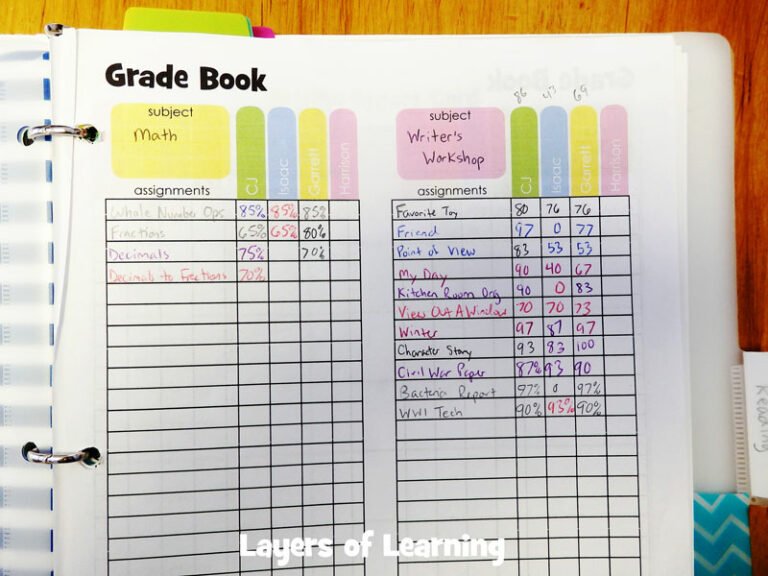 Grade Book
subject
Math
CJ Isaac Garrett Harrison
assignments
Whole Number Ops 85% 85% 85%
Fractions 65% 65% 80%
Decimals 75% 70%
Decimals to Fractions 70%
86 69
subject
Writer's
Workshop
CJ Isaac Garrett Harrison
assignments
Favorite Toy 80 76 76
Friend 97 0 77
Point of View 83 53 53
My Day 90 40 67
Kitchen Room Org 90 0 83
View Out A Window 70 70 73
Winter 97 87 97
Character Story 93 83 100
Civil War Paper 87% 93 90
Bacteria Report 97% 0 97%
WWI Tech 90% 93% 90%
Reading
Layers of Learning